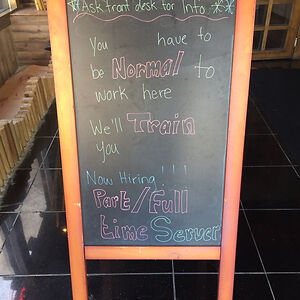 Ask front desk for Info
You have to
be Normal to
work here
We'll Train
you
Now Hiring!!!
Part/Full
time Server